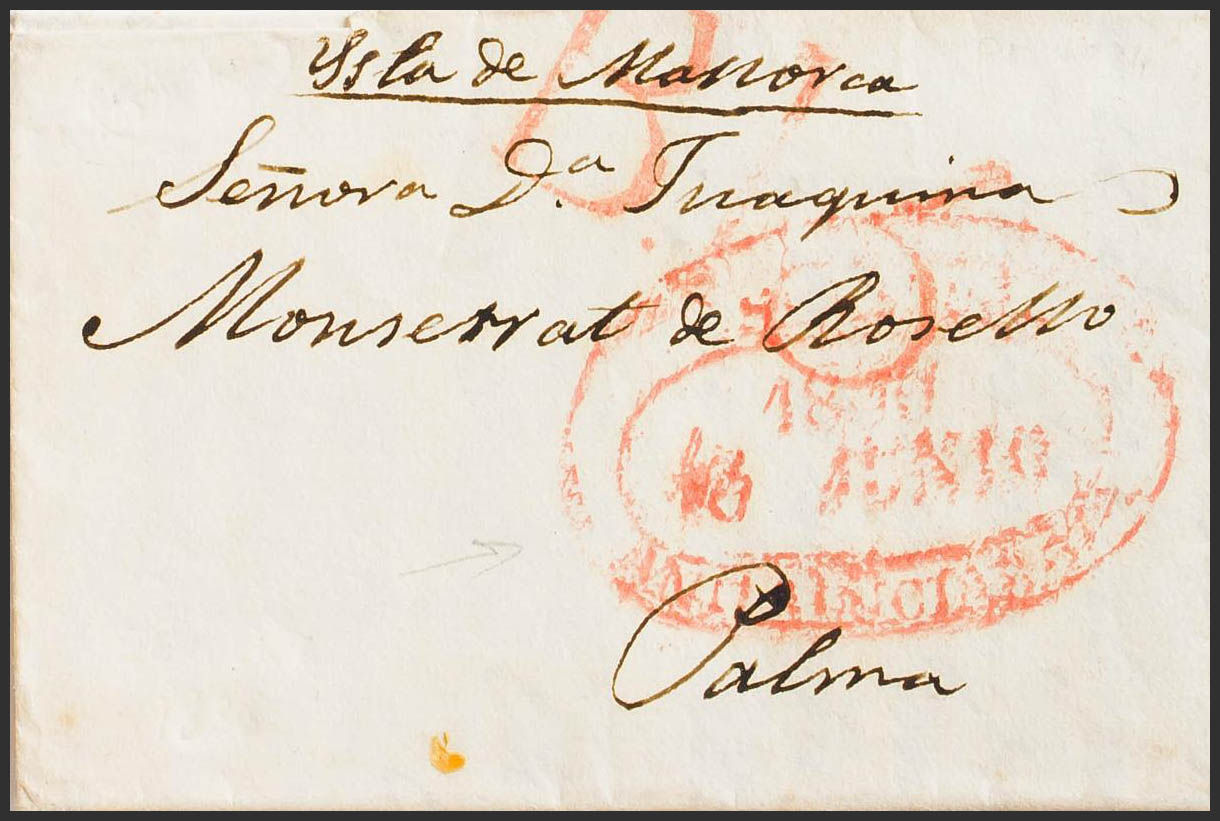 Ysla de Mallorca
Señora D.ª Juaquina
Monserrat de Rosello
16 JUNIO
Palma